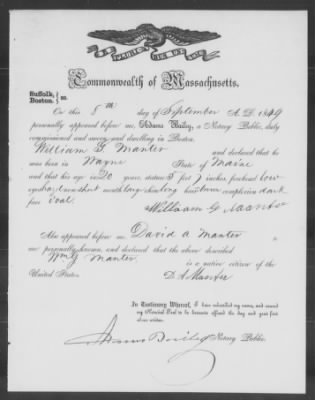 E PLURIBUS UNUM
Commonwealth of Massachusetts.
Suffolk,
Boston. } ss.
On this 8th day of September A. D. 1849
personally appeared before me, Adams Bailey, a Notary Public, duly
commissioned and sworn, and dwelling in Boston,
William G. Manter and declared that he
was born in Wayne State of Maine
and that his age is 20 years, stature 5 feet 7 inches forehead low
eyes hazel nose short mouth large chin long hair brown complexion dark
face oval.
William G Manter
Also appeared before me, David A Manter
me personally known, and declared that the above described
Wm G Manter. is a native citizen of the
United States.
D A Manter
In Testimony Whereof, I have subscribed my name, and caused
my Notarial Seal to be hereunto affixed the day and year first
above written.
Adams Bailey Notary Public.